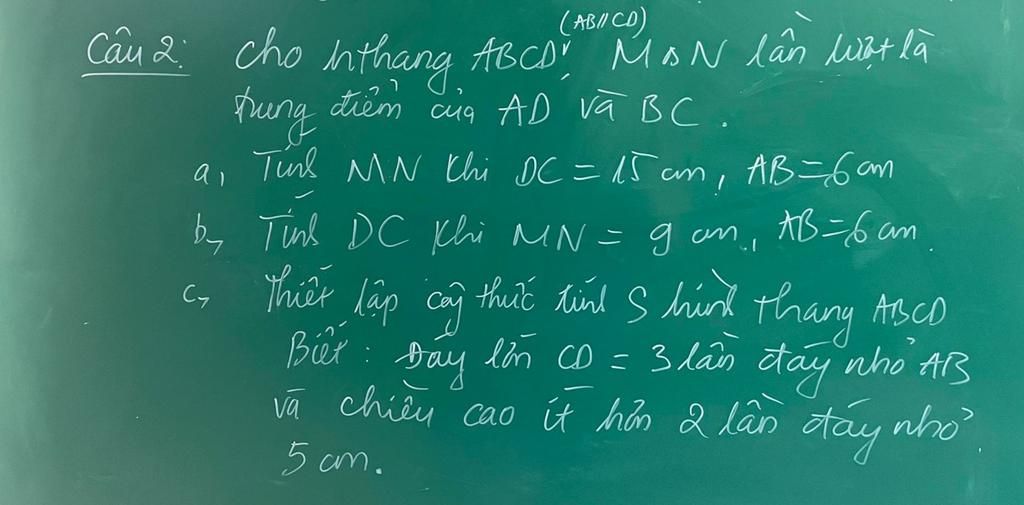 (AB//CD)
Câu 2: Cho hthang ABCD, M & N lần lượt là
trung điểm của AD và BC.
a, Tính MN khi DC = 15 cm, AB = 6 cm
b, Tính DC khi MN = 9 cm, AB = 6 cm.
c, Thiết lập công thức tính S hình thang ABCD
Biết: Đáy lớn CD = 3 lần đáy nhỏ AB
và chiều cao ít hơn 2 lần đáy nhỏ
5 cm.